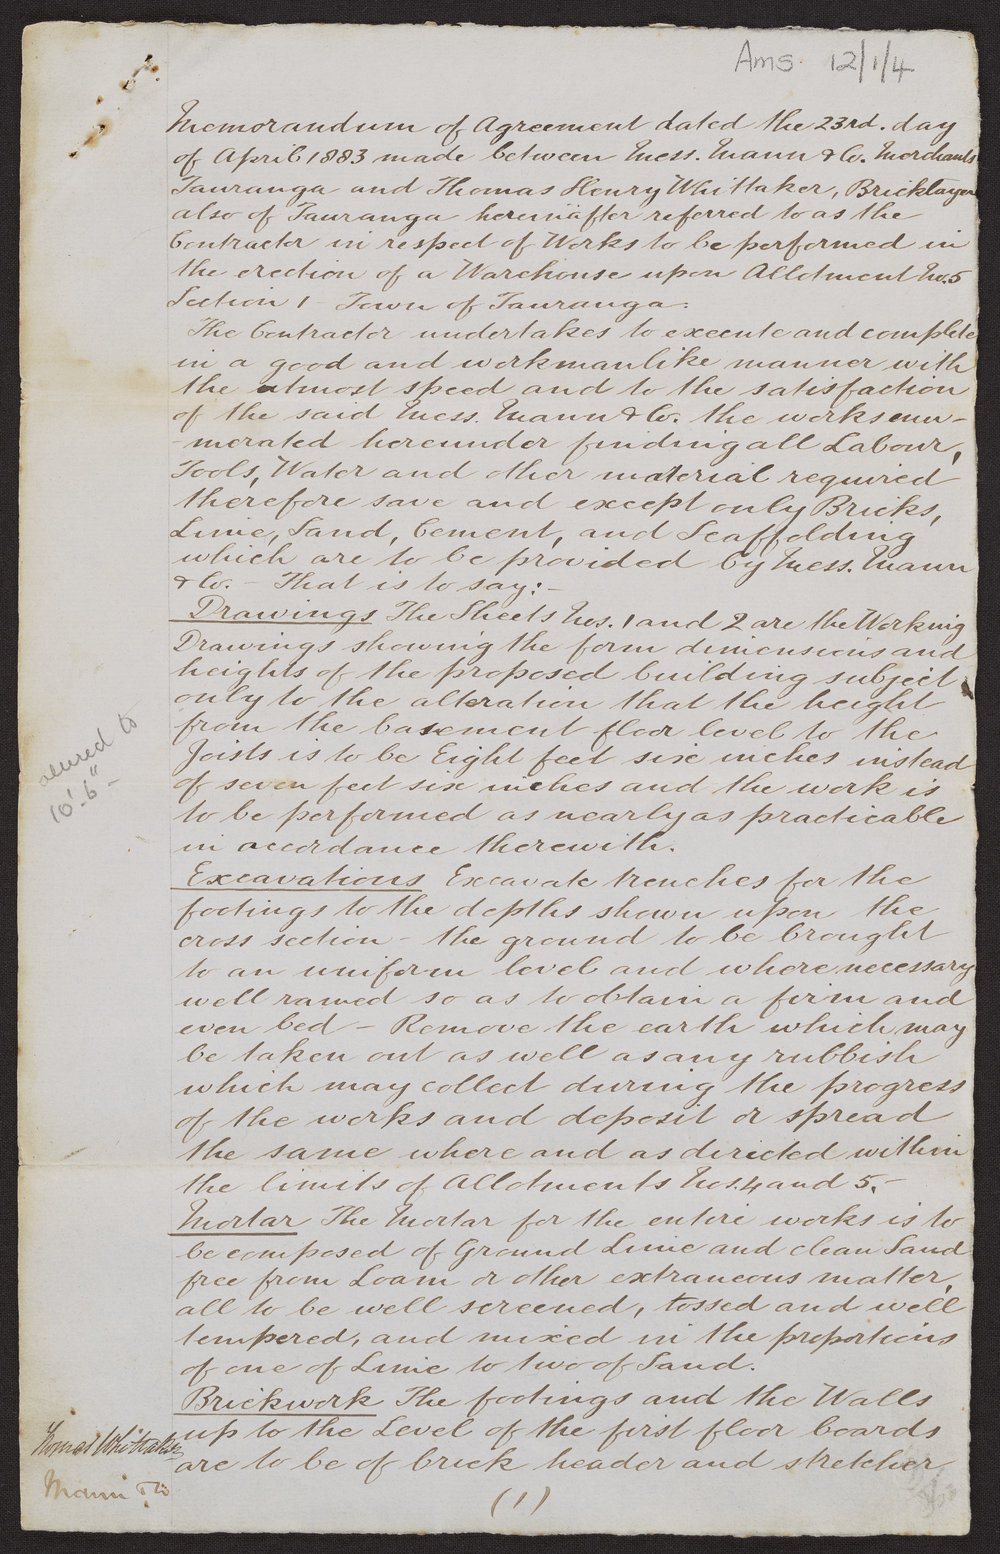 Ams 12/1/4
Memorandum of Agreement dated the 23rd. day
of April 1883 made between Mess. Mann & Co. Merchants
Tauranga and Thomas Henry Whittaker, Bricklayer
also of Tauranga hereinafter referred to as the
Contractor in respect of Works to be performed in
the erection of a Warehouse upon Allotment No. 5
Section 1 - Town of Tauranga:
The Contractor undertakes to execute and complete
in a good and workmanlike manner with
the utmost speed and to the satisfaction
of the said Mess. Mann & Co. the works enu-
-merated hereunder finding all Labour,
Tools, Water and other material required
therefore save and except only Bricks,
Lime, Sand, Cement, and Scaffolding
which are to be provided by Mess. Mann
& Co. - That is to say: -
Drawings The Sheets Nos. 1 and 2 are the Working
Drawings showing the form dimensions and
heights of the proposed building subject
only to the alteration that the height
from the basement floor level to the
Joists is to be Eight feet six inches instead
of seven feet six inches and the work is
to be performed as nearly as practicable
in accordance therewith.
to
10'-6"-
Excavations Excavate trenches for the
footings to the depths shown upon the
cross section - the ground to be brought
to an uniform level and where necessary
well ramed so as to obtain a firm and
even bed - Remove the earth which may
be taken out as well as any rubbish
which may collect during the progress
of the works and deposit or spread
the same where and as directed within
the limits of Allotments Nos. 4 and 5. -
Mortar The Mortar for the entire works is to
be composed of Ground Lime and clean Sand
free from Loam or other extraneous matter,
all to be well screened, tossed and well
tempered, and mixed in the proportions
of one of Lime to two of Sand.
Brickwork The footings and the Walls
up to the Level of the first floor boards
are to be of brick header and stretcher
Thomas Whittaker
Mann & Co
(1)